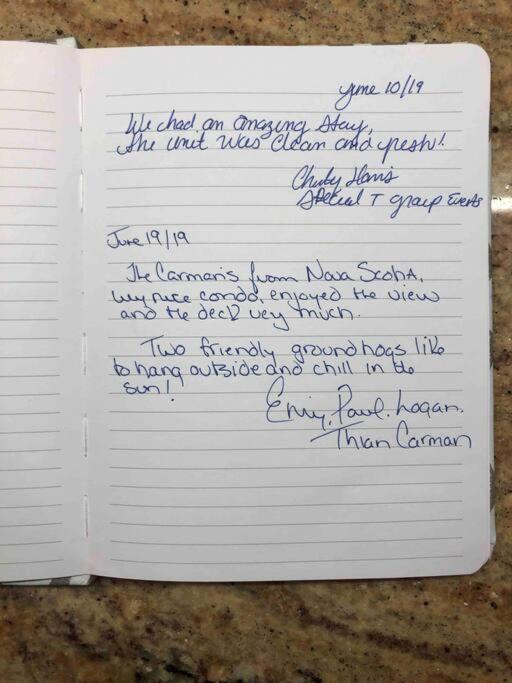 June 10/19
We had an amazing stay,
the unit was clean and fresh!
Harris
Special T group Events
June 19/19
The Carman's from Nova Scotia,
very nice condo, enjoyed the view
and the deck very much.
Two friendly groundhogs like
to hang outside and chill in the
sun!
Paul, Logan,
Carman